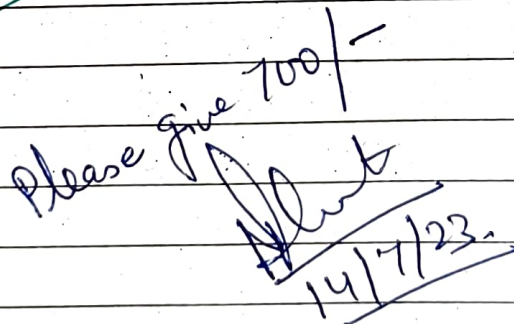 Please give 700/-
14/7/23.